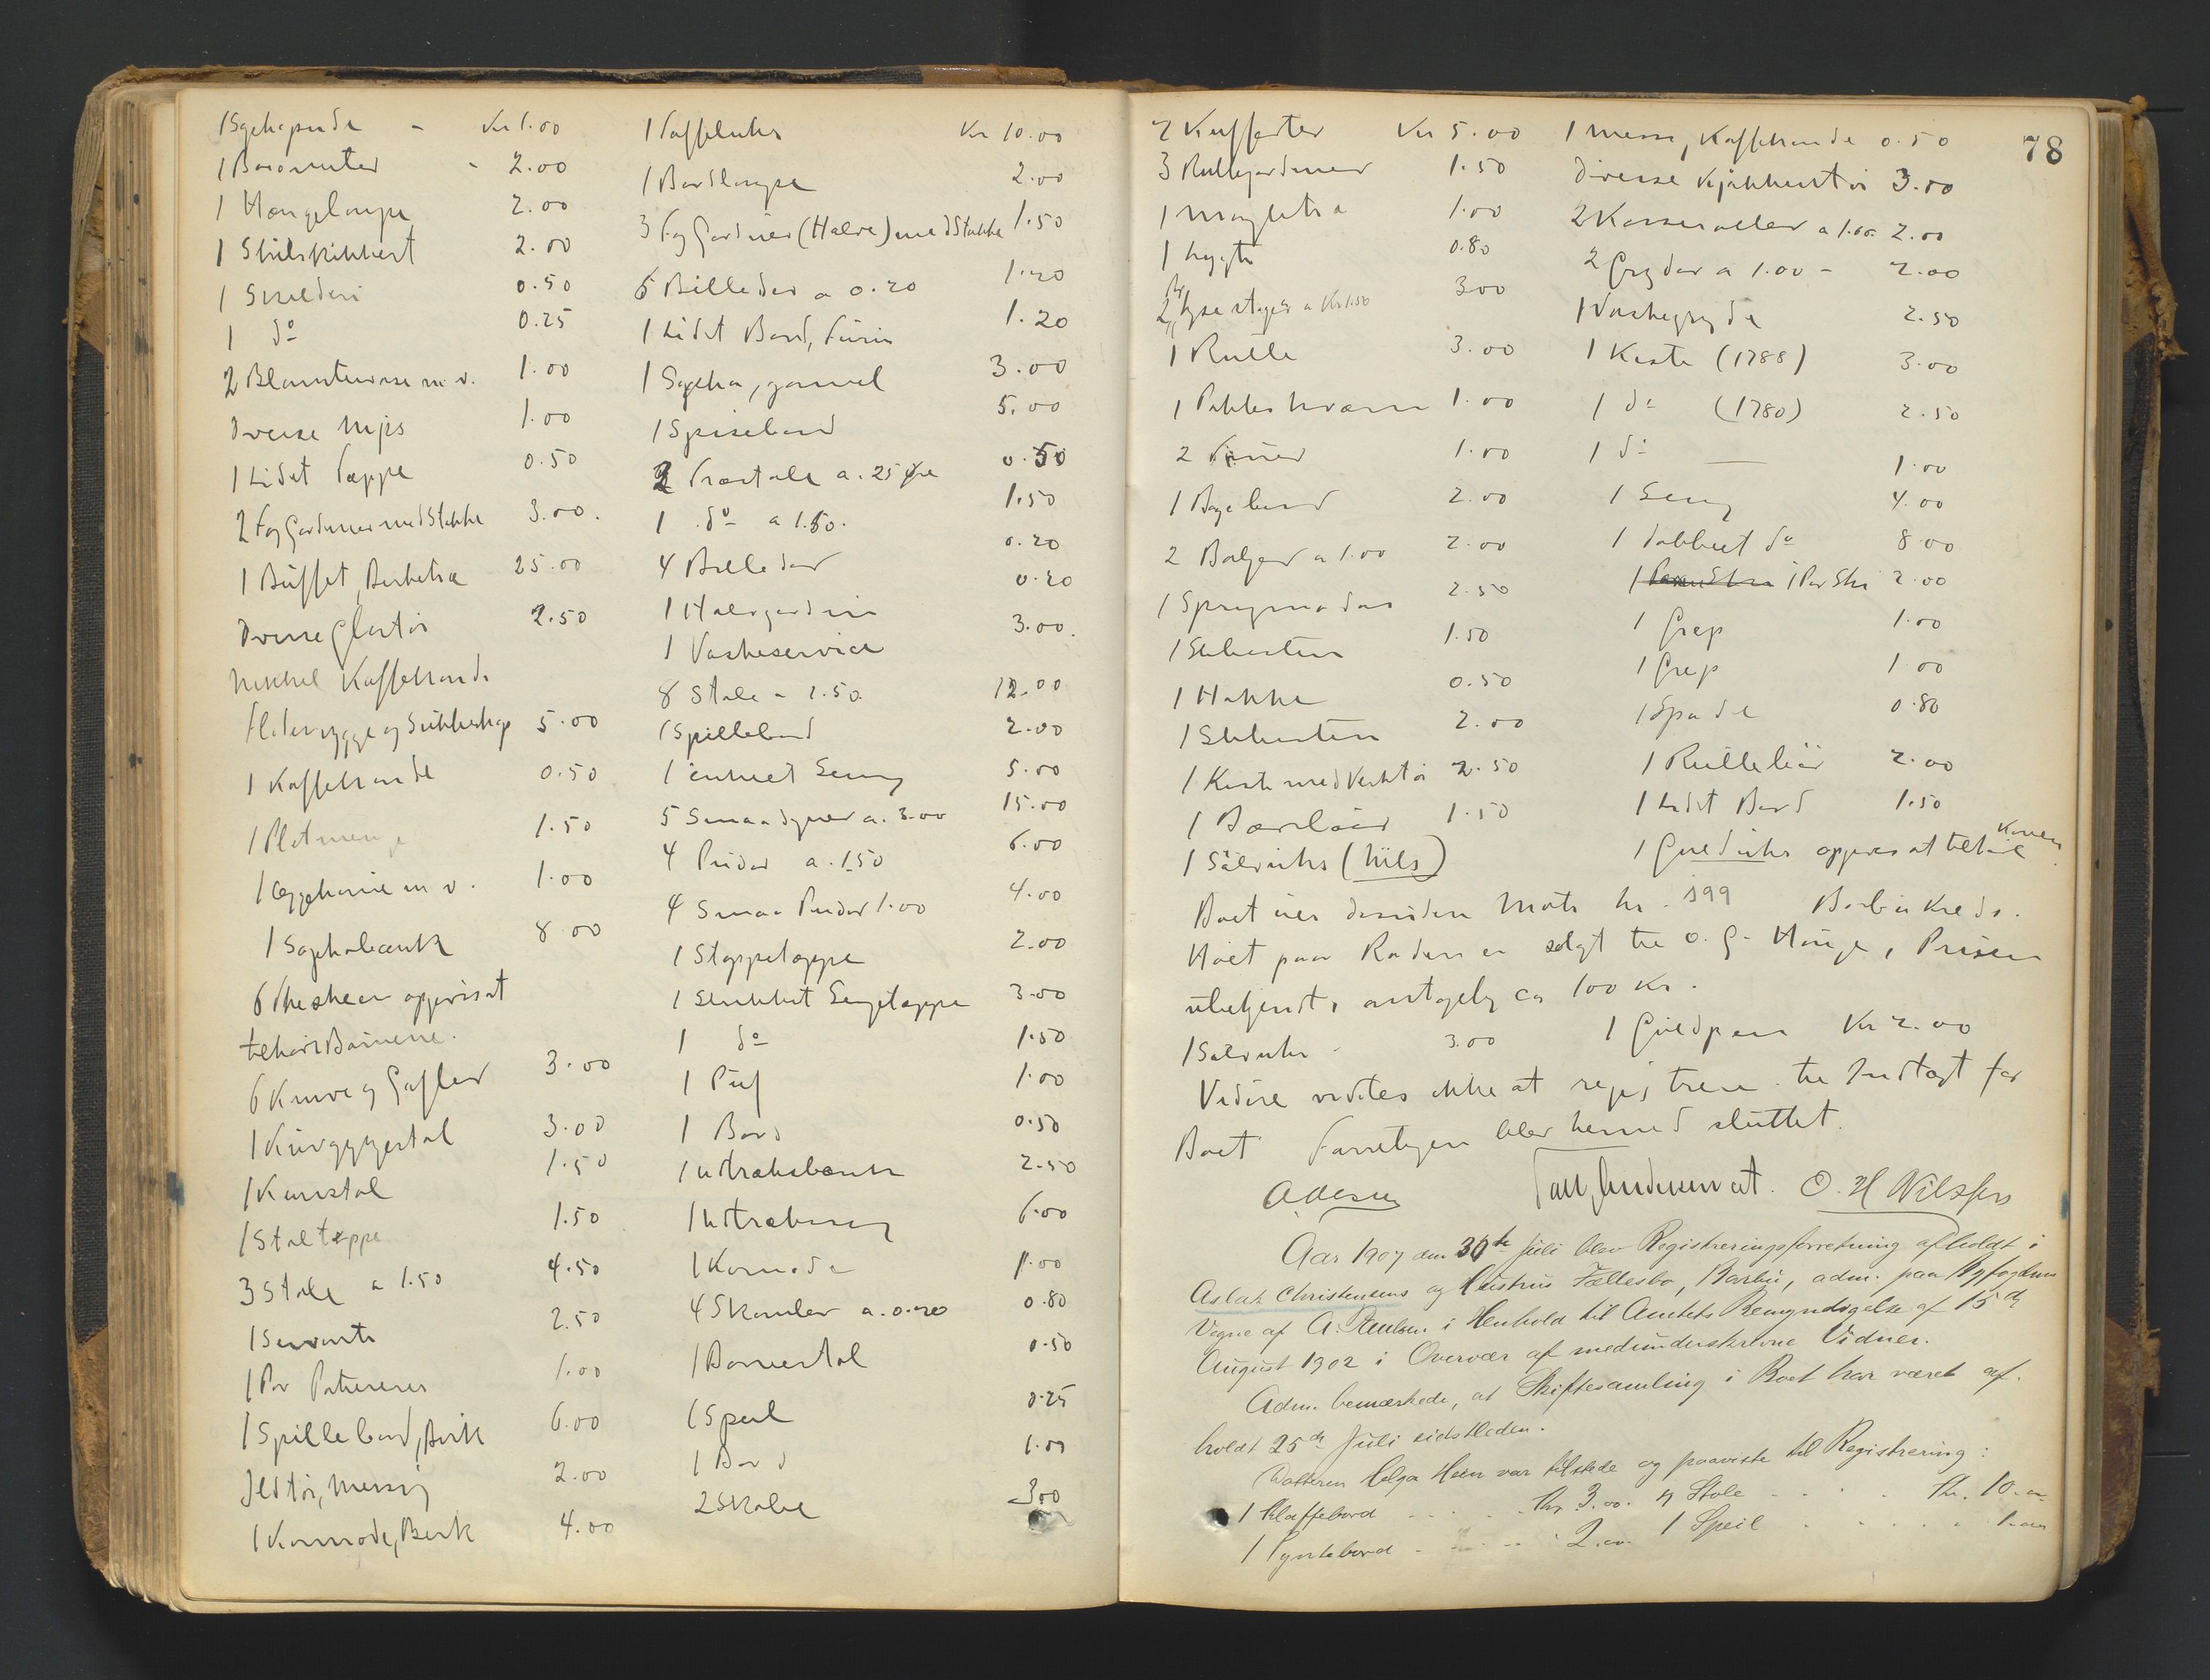 1 Sophapude - Kr 1.00
1 Barometer - 2.00
1 Hængelampe 2.00
1 Skilskikkert 2.00
1 Skilderi 0.50
1 do 0.25
2 Blomstervase m.v. 1.00
Diverse Nips 1.00
1 Lidet Tæppe 0.50
2 Fag Gardiner med Stokke 3.00.
1 Buffet, Birketræ 25.00
Diverse Glastøi 2.50
Nikkel Kaffekande
Fløtemugge og Sukkerkop 5.00
1 Kaffekande 0.50
1 Platmenage 1.50
1 Æggekurie m.v. 1.00
1 Sophabænk 8.00
6 Theskeer opgives at
tilhøre Børnene.
6 Knive og Gafler 3.00
1 Kurvgyngestol 3.00
1 Kurvstol 1.50
1 Stoltæppe 1.50
3 Stole a 1.50 4.50
1 Servante 2.50
1 Par Potierer 1.00
1 Spillebord, Birk 6.00
Ildtøi, Messing 2.00
1 Kommode, Birk 4.00
1 Taffeluhr Kr 10.00
1 Bordlampe 2.00
3 Fag Gardiner (Halve) med Stokke 1.50
6 Billeder a 0.20 1.20
1 Lidet Bord, Furu 1.20
1 Sopha, gammel 3.00
1 Spisebord 5.00
2 Træstole a. 25 Øre 0.50
1 do a 1.50. 1.50
4 Billeder 0.20
1 Halvgardin 0.20
1 Vaskeservice 3.00.
8 Stole a 1.50. 12.00
1 Spillebord 2.00
1 enkelt Seng 5.00
5 Smaa dyner a. 3.00 15.00
4 Puder a. 1.50 6.00
4 Smaa Puder 1.00 4.00
1 Stoppetæppe 2.00
1 Strikket Sengetæppe 3.00
1 do 1.50
1 Puf 1.00
1 Bord 0.50
1 Udtræksbænk 2.50
1 Udtræksseng 6.00
1 Komode 1.00
4 Skamler a. 0.20 0.80
1 Barnestol 0.50
1 Speil 0.25
1 Bord 1.00
2 Skabe 3.00
78
2 Kufferter Kr 5.00
3 Rullegardiner 1.50
1 Mangletræ 1.00
1 Lygte 0.80
2 Pr Lysestager a Kr 1.50 3.00
1 Rulle 3.00
1 Pebberkværn 1.00
2 Tiner 1.00
1 Bagebord 2.00
2 Baljer a 1.00 2.00
1 Springmadras 2.50
1 Slibesten 1.50
1 Hakke 0.50
1 Slibesten 2.00
1 Kiste med Verktøi 2.50
1 Bærebør 1.50
1 Sølvuhr (Nils)
1 Messing Kaffekande 0.50
Diverse Kjøkkentøi 3.00
2 Kasseroller a 1.00 2.00
2 Gryder a 1.00 - 2.00
1 Vaskegryde 2.50
1 Kiste (1788) 3.00
1 do (1780) 2.50
1 do 1.00
1 Seng 4.00
1 dobbelt do 8.00
1 Par Ski 2.00
1 Grep 1.00
1 Grep 1.00
1 Spade 0.80
1 Rullebør 2.00
1 Lidet Bord 1.50
1 Gulduhr opgives at tilhøre Konen.
Boet eier desuden Matr Nr. 199 Barbu Kreds.
Huset paa Roden er solgt til O. G. Hauge, Prisen
ubekjendt, antagelig ca 100 Kr.
1 Sølvuhr 3.00 1 Guldpen Kr 2.00
Videre vidstes ikke at registrere til Indtægt for
Boet Forretningen blev hermed sluttet.
O. H Nilssen
Aar 1907 den 30te Juli blev Registreringsforretning afholdt i
Aslak Christensens og Hustrus Fællesbo, Barbu, adm. paa Byfogdens
Vegne af A. Paulsen i Henhold til Amtets Bemyndigelse af 15de
August 1902 i Overvær af medunderskrevne Vidner.
Adm. bemærkede, at Skiftesamling i Boet har været af-
holdt 25de Juli sidstleden.
Datteren Helga Hein var tilstede og paaviste til Registrering:
1 Klaffebord . . . . . Kr. 3.00. 4 Stole . . . . . Kr. 10.00
1 Pyntebord . . . . . 2.00. 1 Speil . . . . . . 1.00